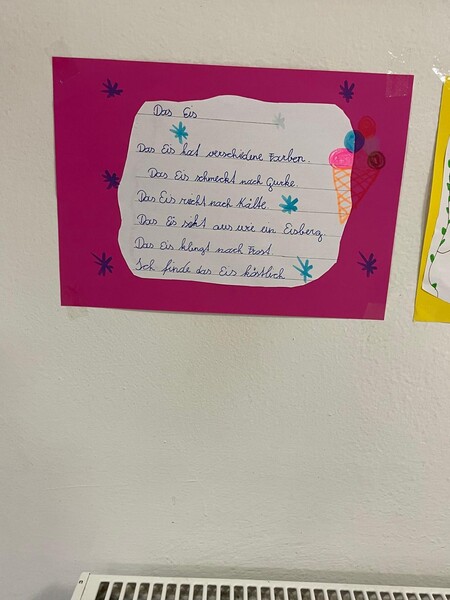 Das Eis
Das Eis hat verschidene Farben.
Das Eis schmeckt nach Gurke.
Das Eis riecht nach Kälte.
Das Eis siht aus wie ein Eisberg.
Das Eis klingt nach Frost.
Ich finde das Eis köstlich